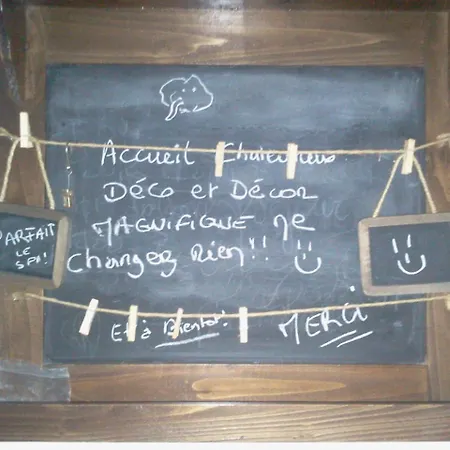 Accueil Chaleureux
Déco et Décor
MAGNIFIQUE ne
changez Rien!!
Et à Bientôt!
MERCI
PARFAIT
LE
SPA!